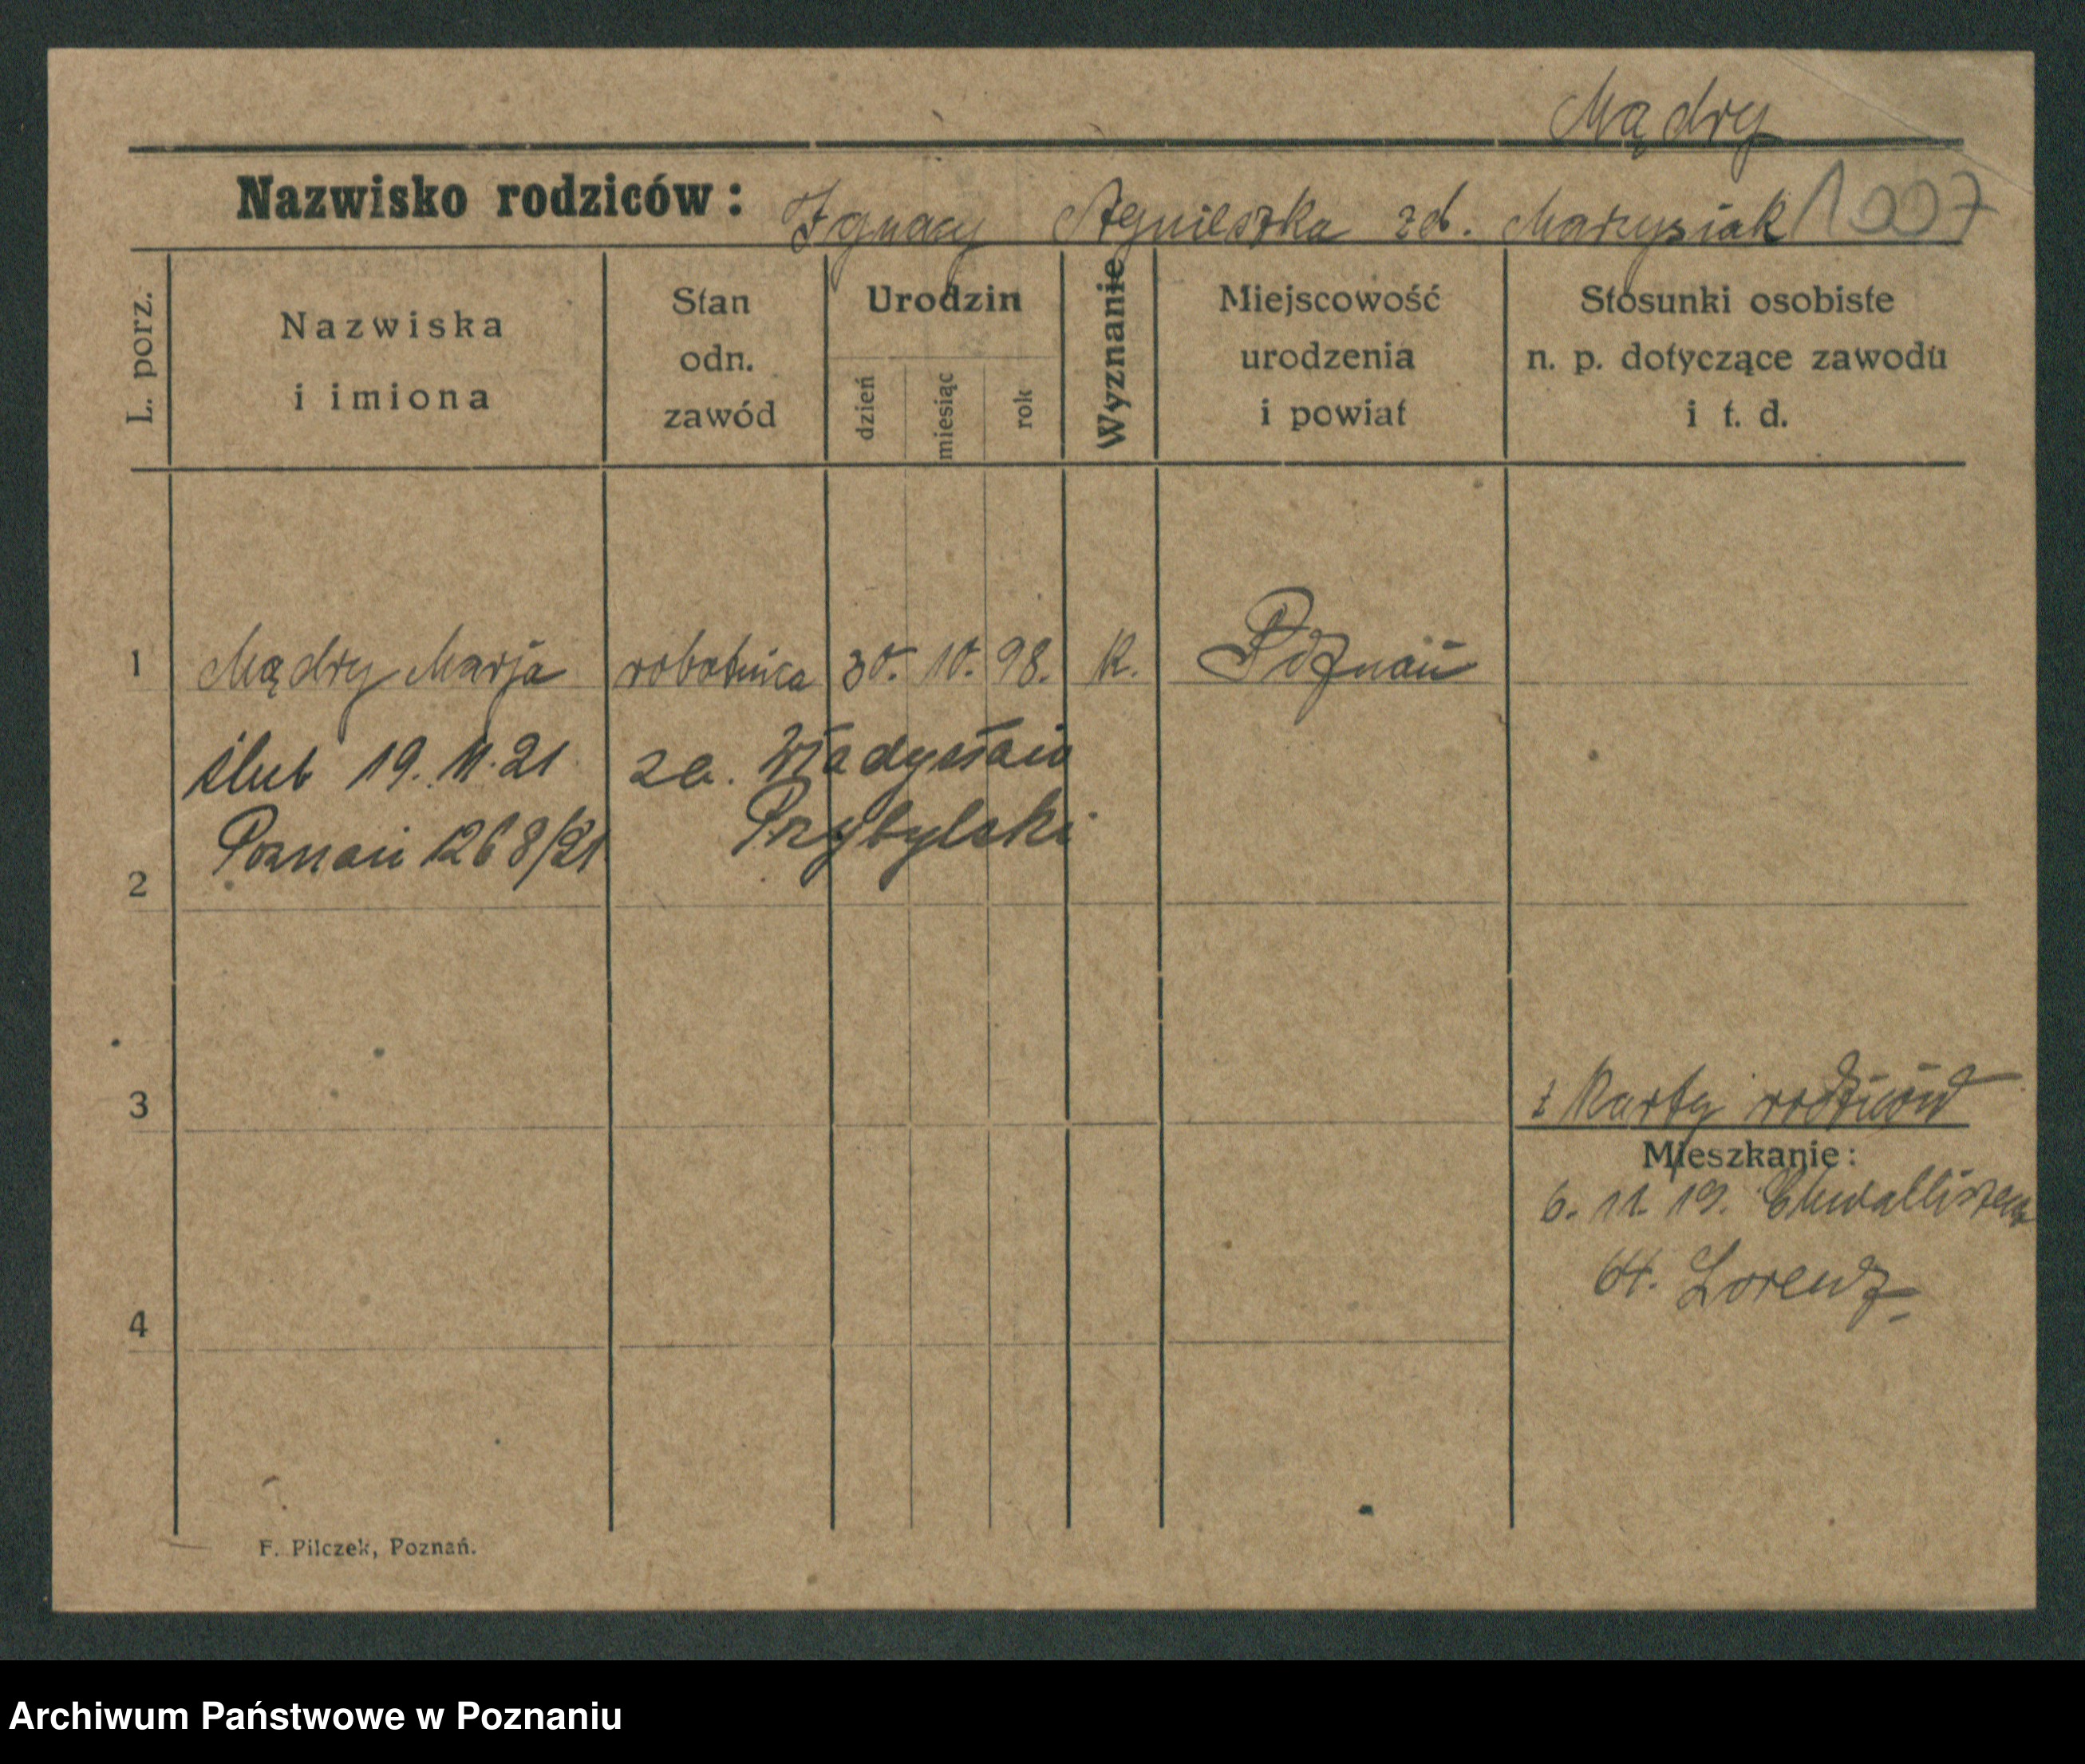 Mądry
Nazwisko rodziców: Ignacy Agnieszka zd. Matysiak 1007
L. porz.
Nazwiska
i imiona
Stan
odn.
zawód
Urodzin
dzień
miesiąc
rok
Wyznanie
Miejscowość
urodzenia
i powiat
Stosunki osobiste
n. p. dotyczące zawodu
i t. d.
1 Mądry Marja robotnica 30. 10. 98. K. Poznań
ślub 19. 11. 21. za. Władysław
Poznań 1268/21 Przybylski
2
3
z Karty rodziców
Mieszkanie:
6. 11. 19.
Lorenz
4
F. Pilczek, Poznań.
Archiwum Państwowe w Poznaniu